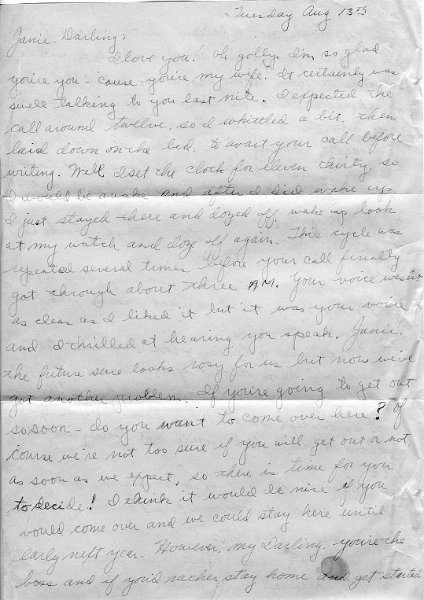 Tuesday Aug 13th
Janie Darling;
I love you! Oh golly I'm so glad
you're you - 'cause you're my wife. It certainly was
swell talking to you last nite. I expected the
call around twelve, so I whittled a bit, then
laid down on the bed, to await your call before
writing. Well, I set the clock for eleven thirty so
I would be awake and after I did wake up
I just stayed there and dozed off, wake up look
at my watch and doze off again. This cycle was
repeated several times before your call finally
got through about three A.M. Your voice wasn't
as clear as I liked it but it was your voice
and I thrilled at hearing you speak. Janie,
the future sure looks rosy for us but now we've
got another problem. If you're going to get out
so soon - do you want to come over here? Of
course we're not too sure if you will get out or not
as soon as we expect, so there is time for you
to decide! I think it would be nice if you
would come over and we could stay here until
early next year. However, my Darling you're the
boss and if you'd rather stay home and get started